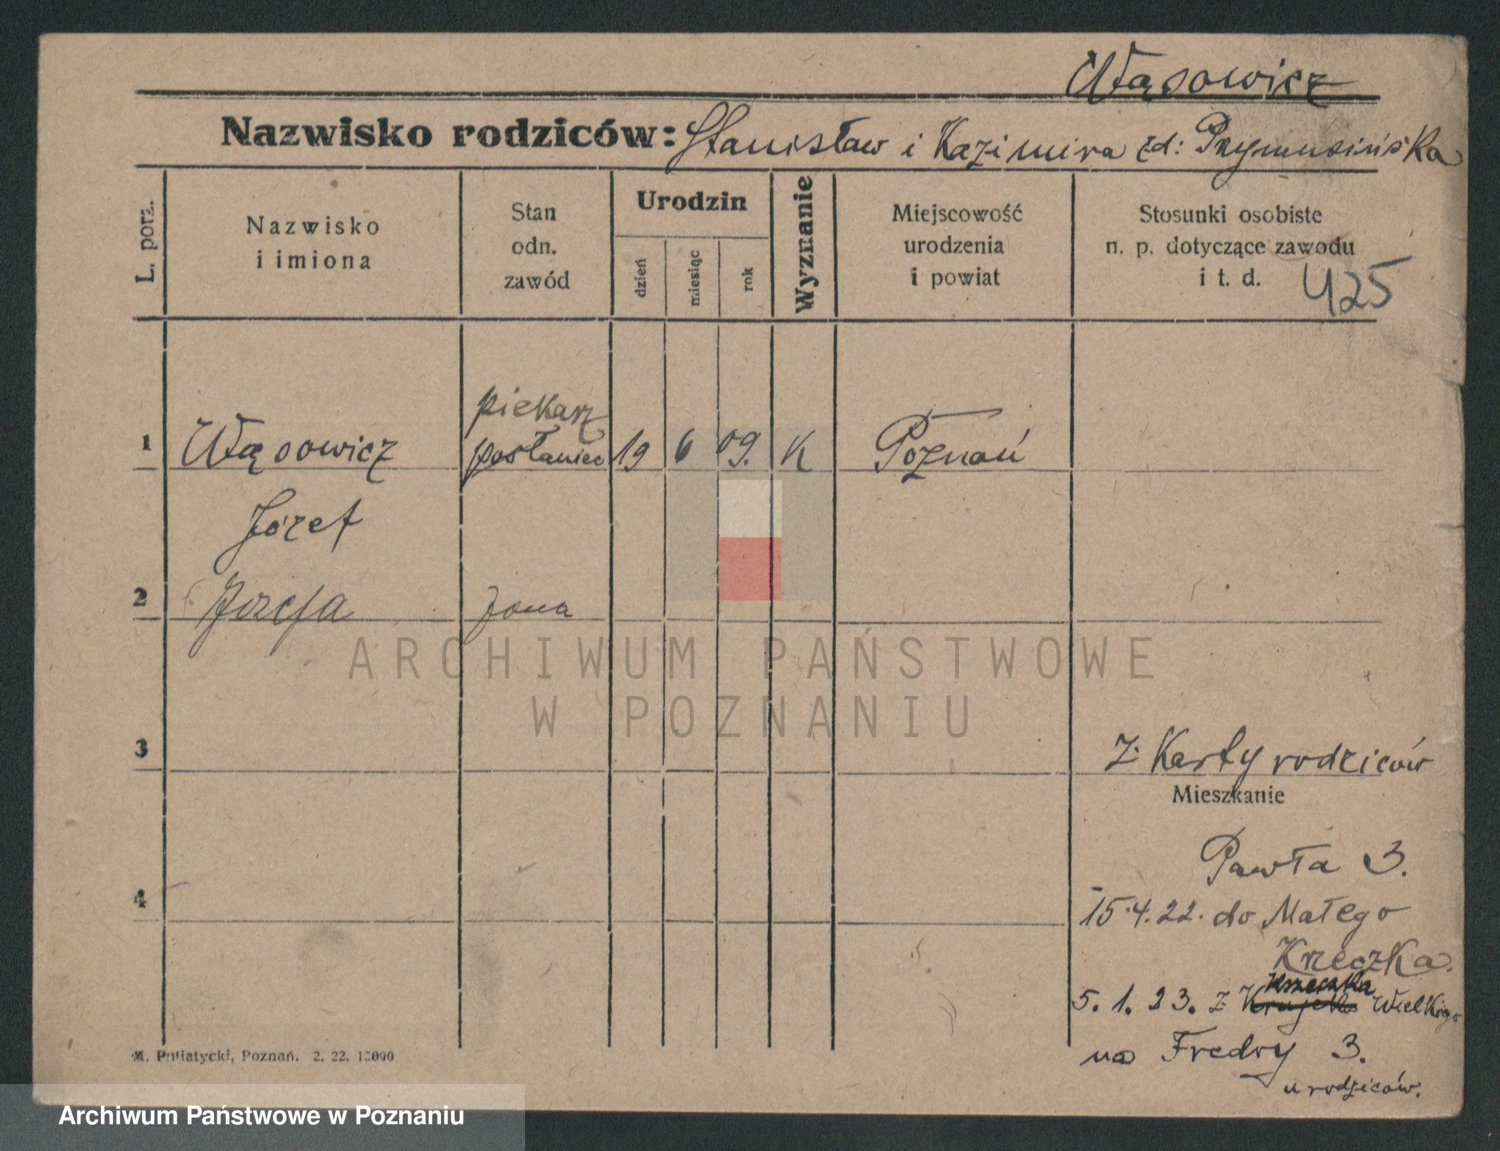 Wąsowicz
Nazwisko rodziców: Stanisław i Kazimira zd: Przymusińska
L. porz.
Nazwisko
i imiona
Stan
odn.
zawód
Urodzin
dzień
miesiąc
rok
Wyznanie
Miejscowość
urodzenia
i powiat
Stosunki osobiste
n. p. dotyczące zawodu
i t. d.
425
piekarz
1 Wąsowicz posłaniec 19 6 09. K Poznań
Józef
2 Józefa żona
ARCHIWUM PAŃSTWOWE
W POZNANIU
3 Z Karty rodziców
Mieszkanie
Pawła 3.
4
15.4.22. do Małego
Krzeczka.
Krzeczka
5.1.23. z Wielkiego
na Fredry 3.
u rodziców.
M. Putiatycki, Poznań. 2. 22. 10000
Archiwum Państwowe w Poznaniu